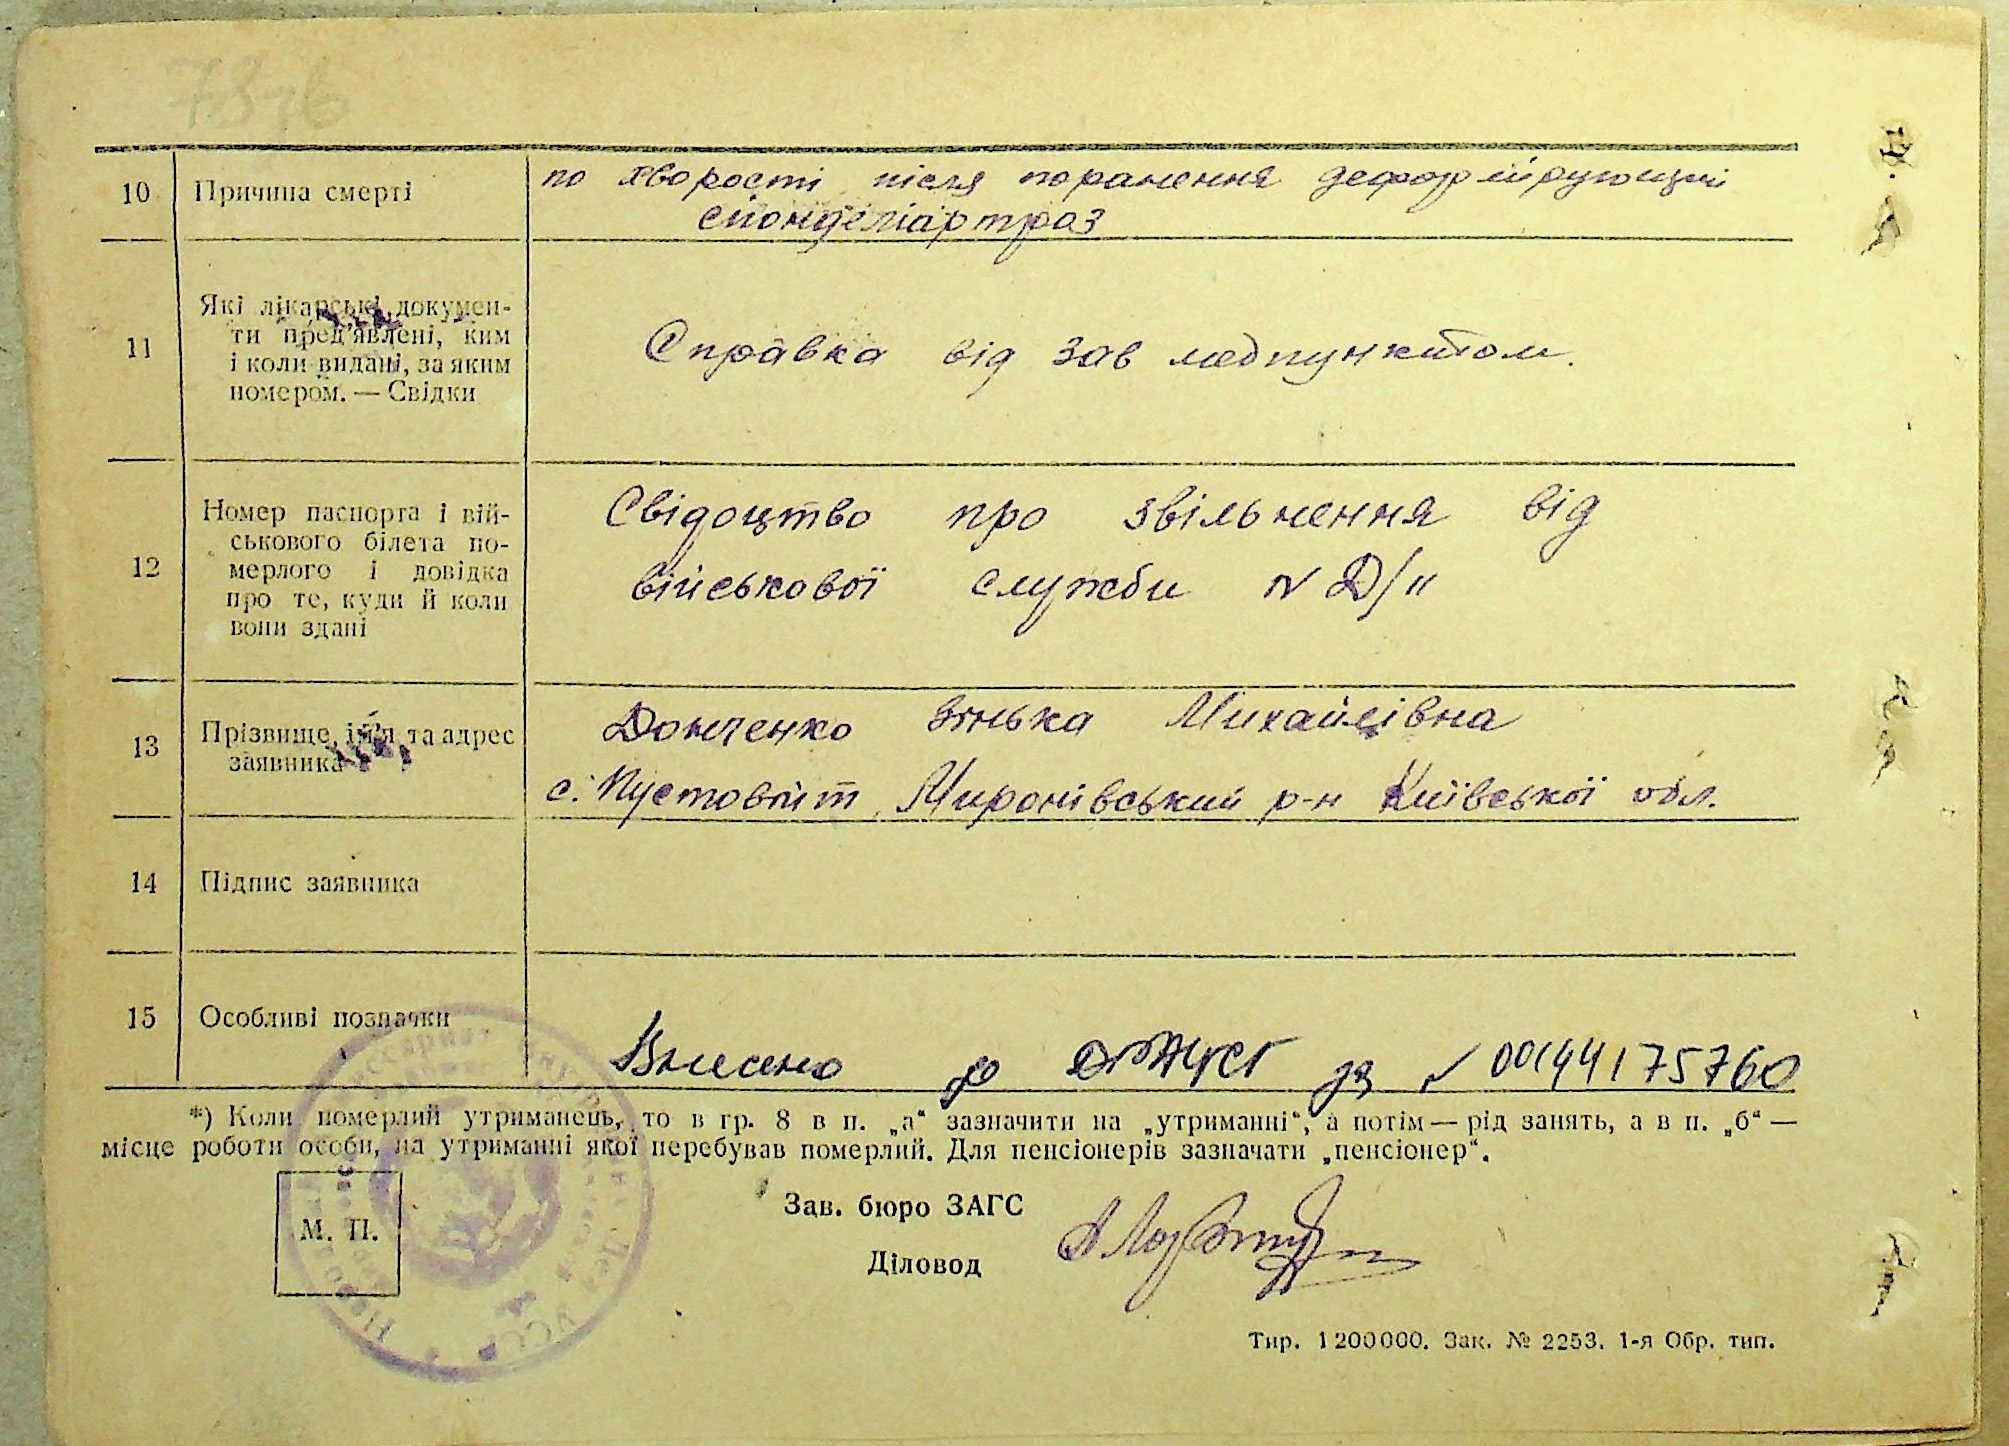 78 зв
10 Причина смерті
по хворості після поранення деформірующий
спонделіартроз
11 Які лікарські докумен-
ти пред'явлені, ким
і коли видані, за яким
номером. — Свідки
Справка від зав медпунктом.
12 Номер паспорта і вій-
ськового білета по-
мерлого і довідка
про те, куди й коли
вони здані
Свідоцтво про звільнення від
військової служби N Д/н
13 Прізвище, ім'я та адрес
заявника
Донченко Зінька Михайлівна
с. Пустовіт, Миронівський р-н Київської обл.
14 Підпис заявника
15 Особливі позначки
Внесено до за № 00144175760
*) Коли померлий утриманець, то в гр. 8 в п. „а“ зазначити на „утриманні“, а потім — рід занять, а в п. „б“ —
місце роботи особи, на утриманні якої перебував померлий. Для пенсіонерів зазначати „пенсіонер“.
М. П.
Зав. бюро ЗАГС
Діловод
Тир. 1200000. Зак. № 2253. 1-я Обр. тип.